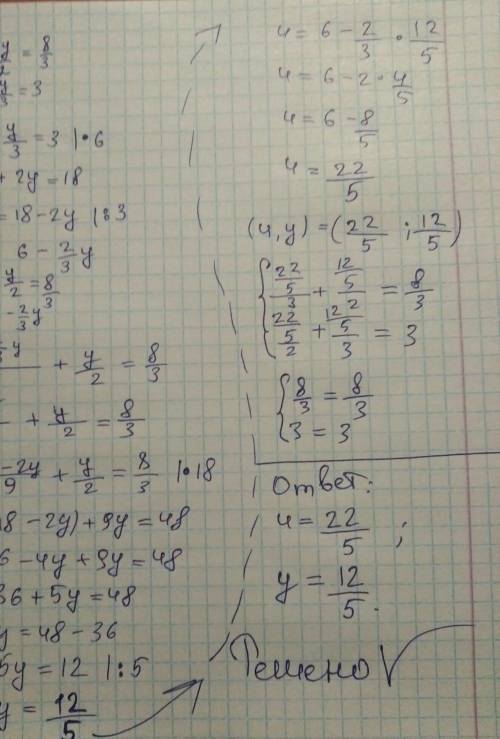 y/2 = 8/3
y/3 = 3
y/3 = 3 |·6
+ 2y = 18
= 18 - 2y |:3
6 - 2/3 y
y/2 = 8/3
- 2/3 y
+ y/2 = 8/3
+ y/2 = 8/3
-2y/9 + y/2 = 8/3 |·18
8 - 2y) + 9y = 48
6 - 4y + 9y = 48
36 + 5y = 48
y = 48 - 36
5y = 12 |:5
y = 12/5
ч = 6 - 2/3 · 12/5
ч = 6 - 2 · 4/5
ч = 6 - 8/5
ч = 22/5
(ч, y) = (22/5 ; 12/5)
{ 22/5/3 + 12/5/2 = 8/3
22/5/2 + 12/5/3 = 3
{ 8/3 = 8/3
3 = 3
Ответ:
ч = 22/5 ;
y = 12/5.
Решено